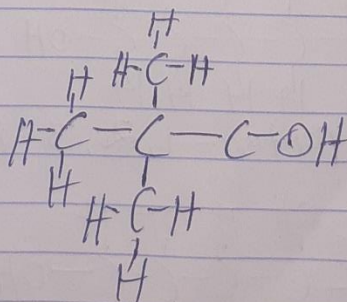 H
H-C-H
H
H-C-C-C-OH
H
H-C-H
H